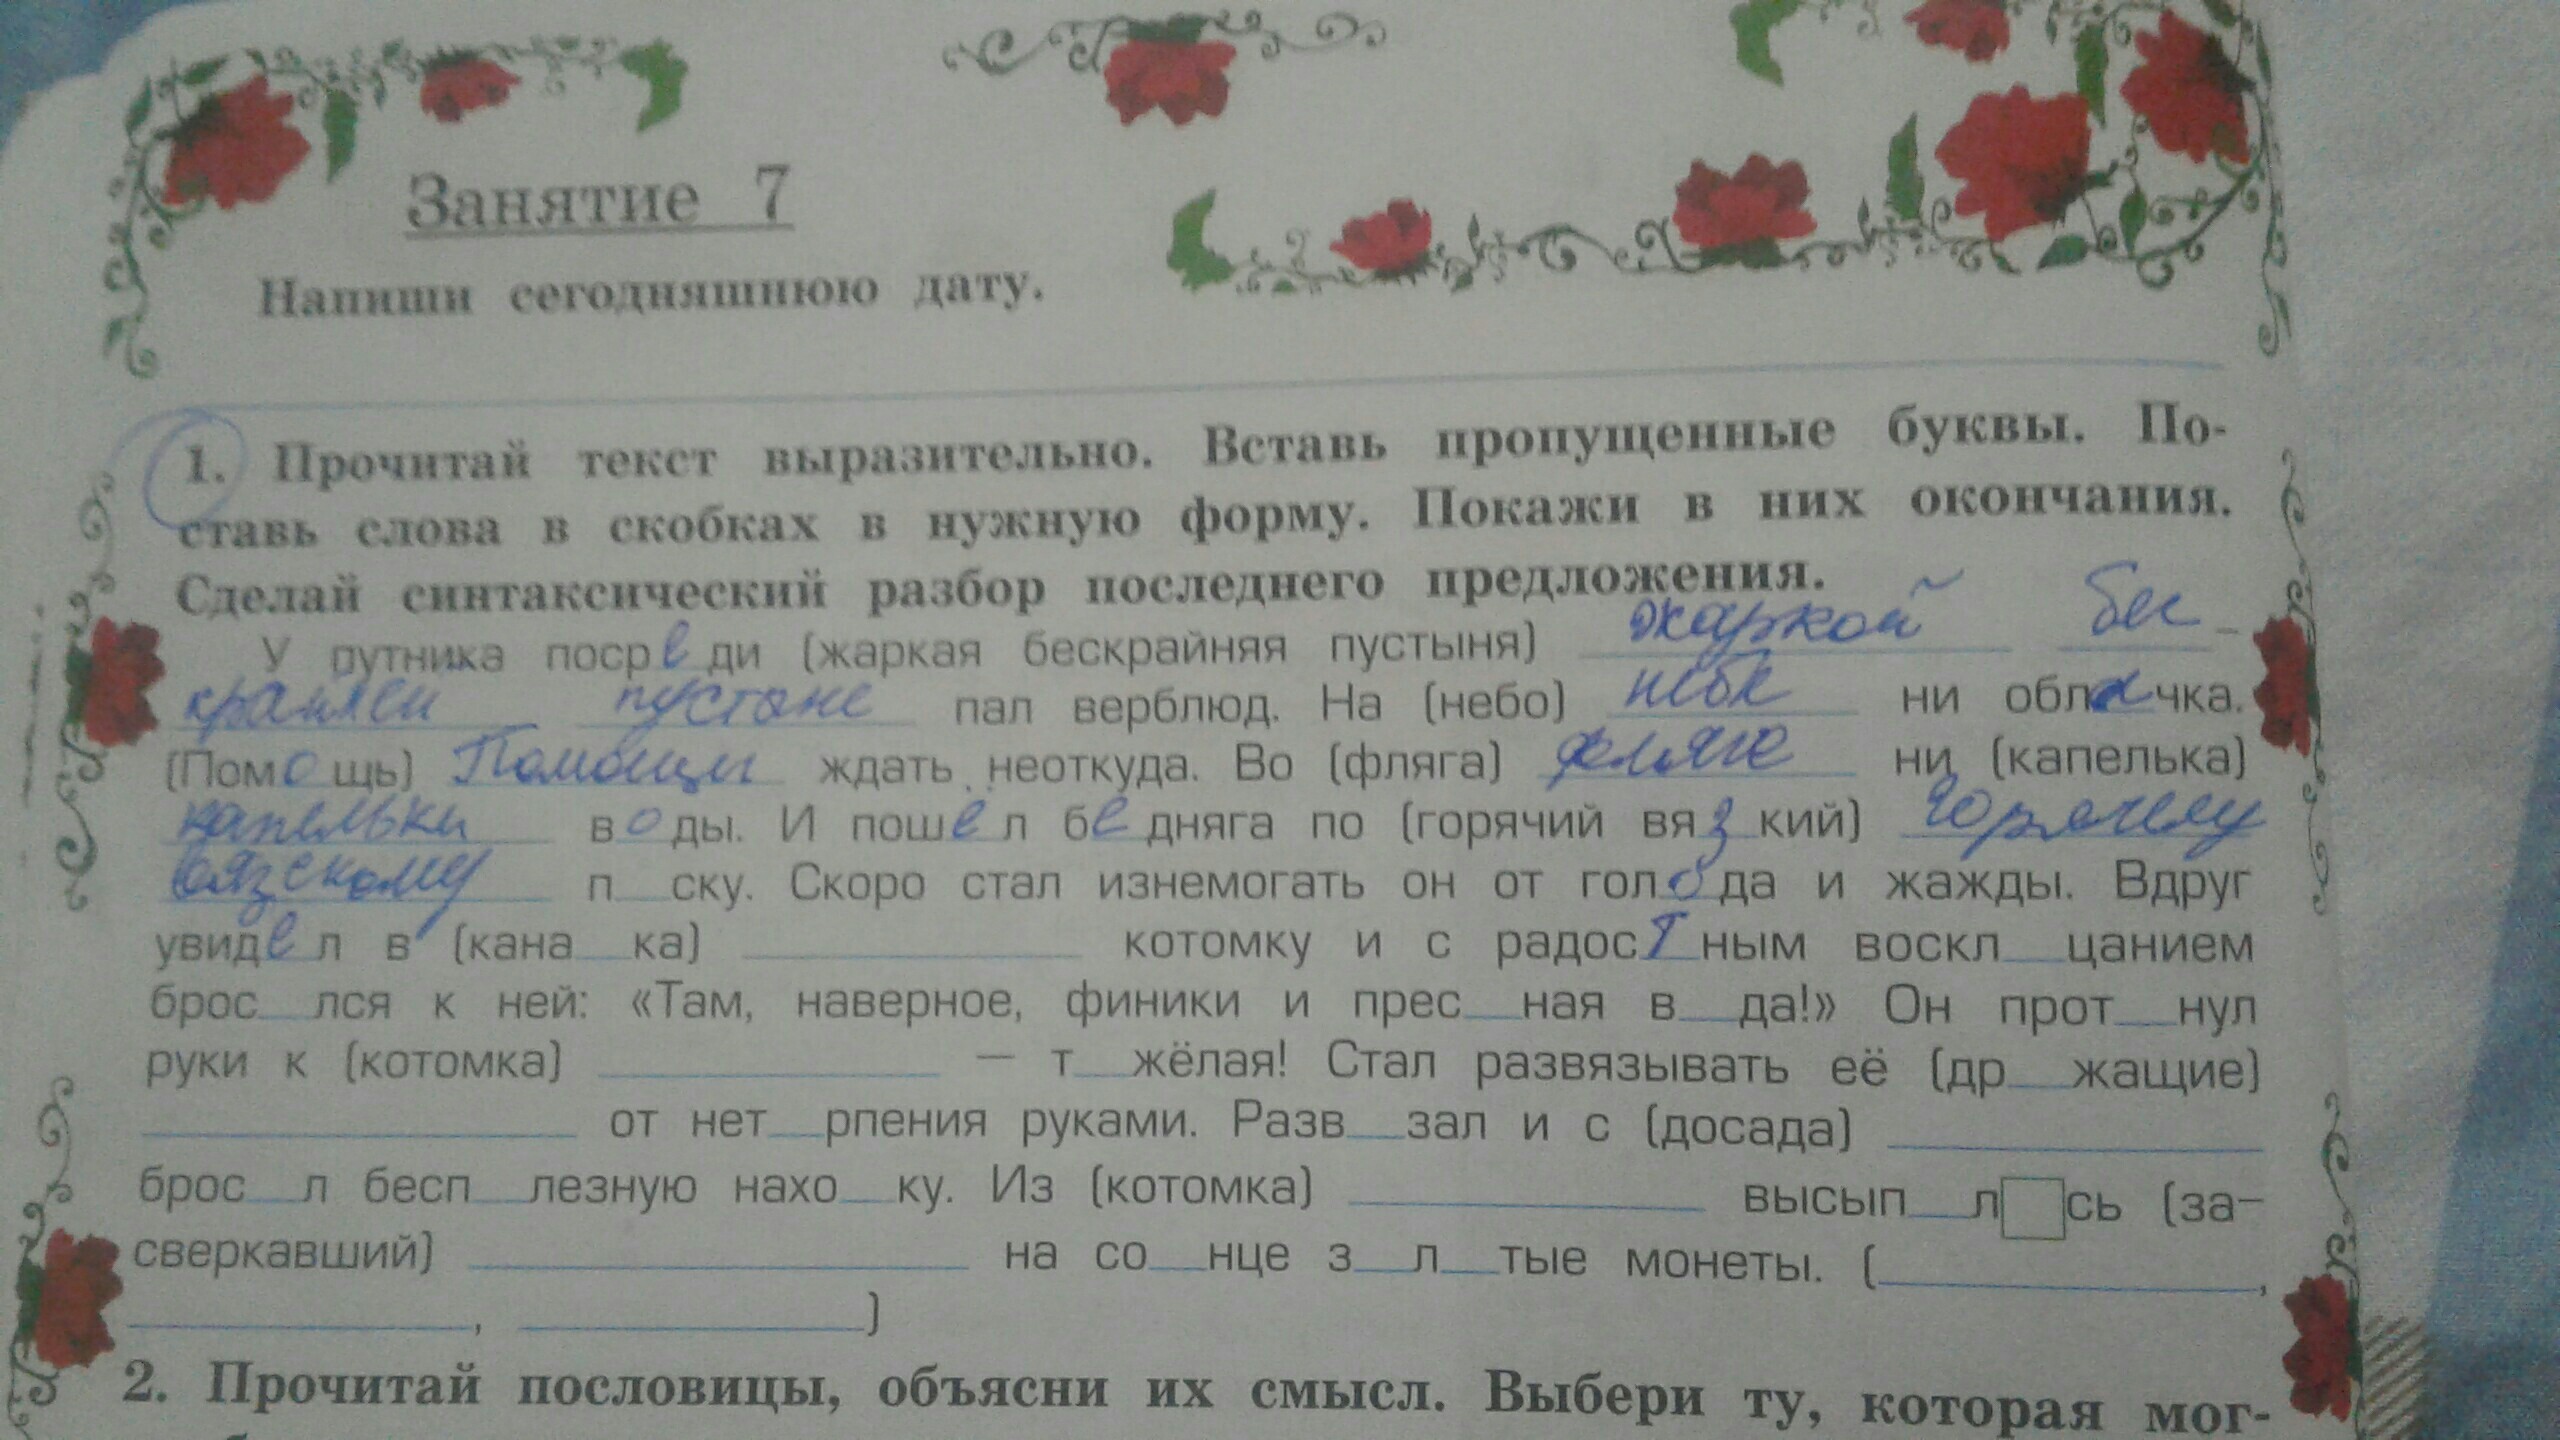 Занятие 7
Напиши сегодняшнюю дату.
1. Прочитай текст выразительно. Вставь пропущенные буквы. По-
ставь слова в скобках в нужную форму. Покажи в них окончания.
Сделай синтаксический разбор последнего предложения.
У путника посреди (жаркая бескрайняя пустыня) жаркой бес-
крайней пустыне пал верблюд. На (небо) небе ни облачка.
(Помощь) Помощи ждать неоткуда. Во (фляга) фляге ни (капелька)
капельки воды. И пошёл бедняга по (горячий вязкий) горячему
вязскому п__ску. Скоро стал изнемогать он от голода и жажды. Вдруг
увидел в (кана__ка) ______ котомку и с радостным воскл__цанием
брос__лся к ней: «Там, наверное, финики и прес__ная в__да!» Он прот__нул
руки к (котомка) ______ — т__жёлая! Стал развязывать её (др__жащие)
______ от нет__рпения руками. Разв__зал и с (досада) ______
брос__л бесп__лезную нахо__ку. Из (котомка) ______ высып__л□сь (за-
сверкавший) ______ на со__нце з__л__тые монеты. (______,
______, ______)
2. Прочитай пословицы, объясни их смысл. Выбери ту, которая мог-